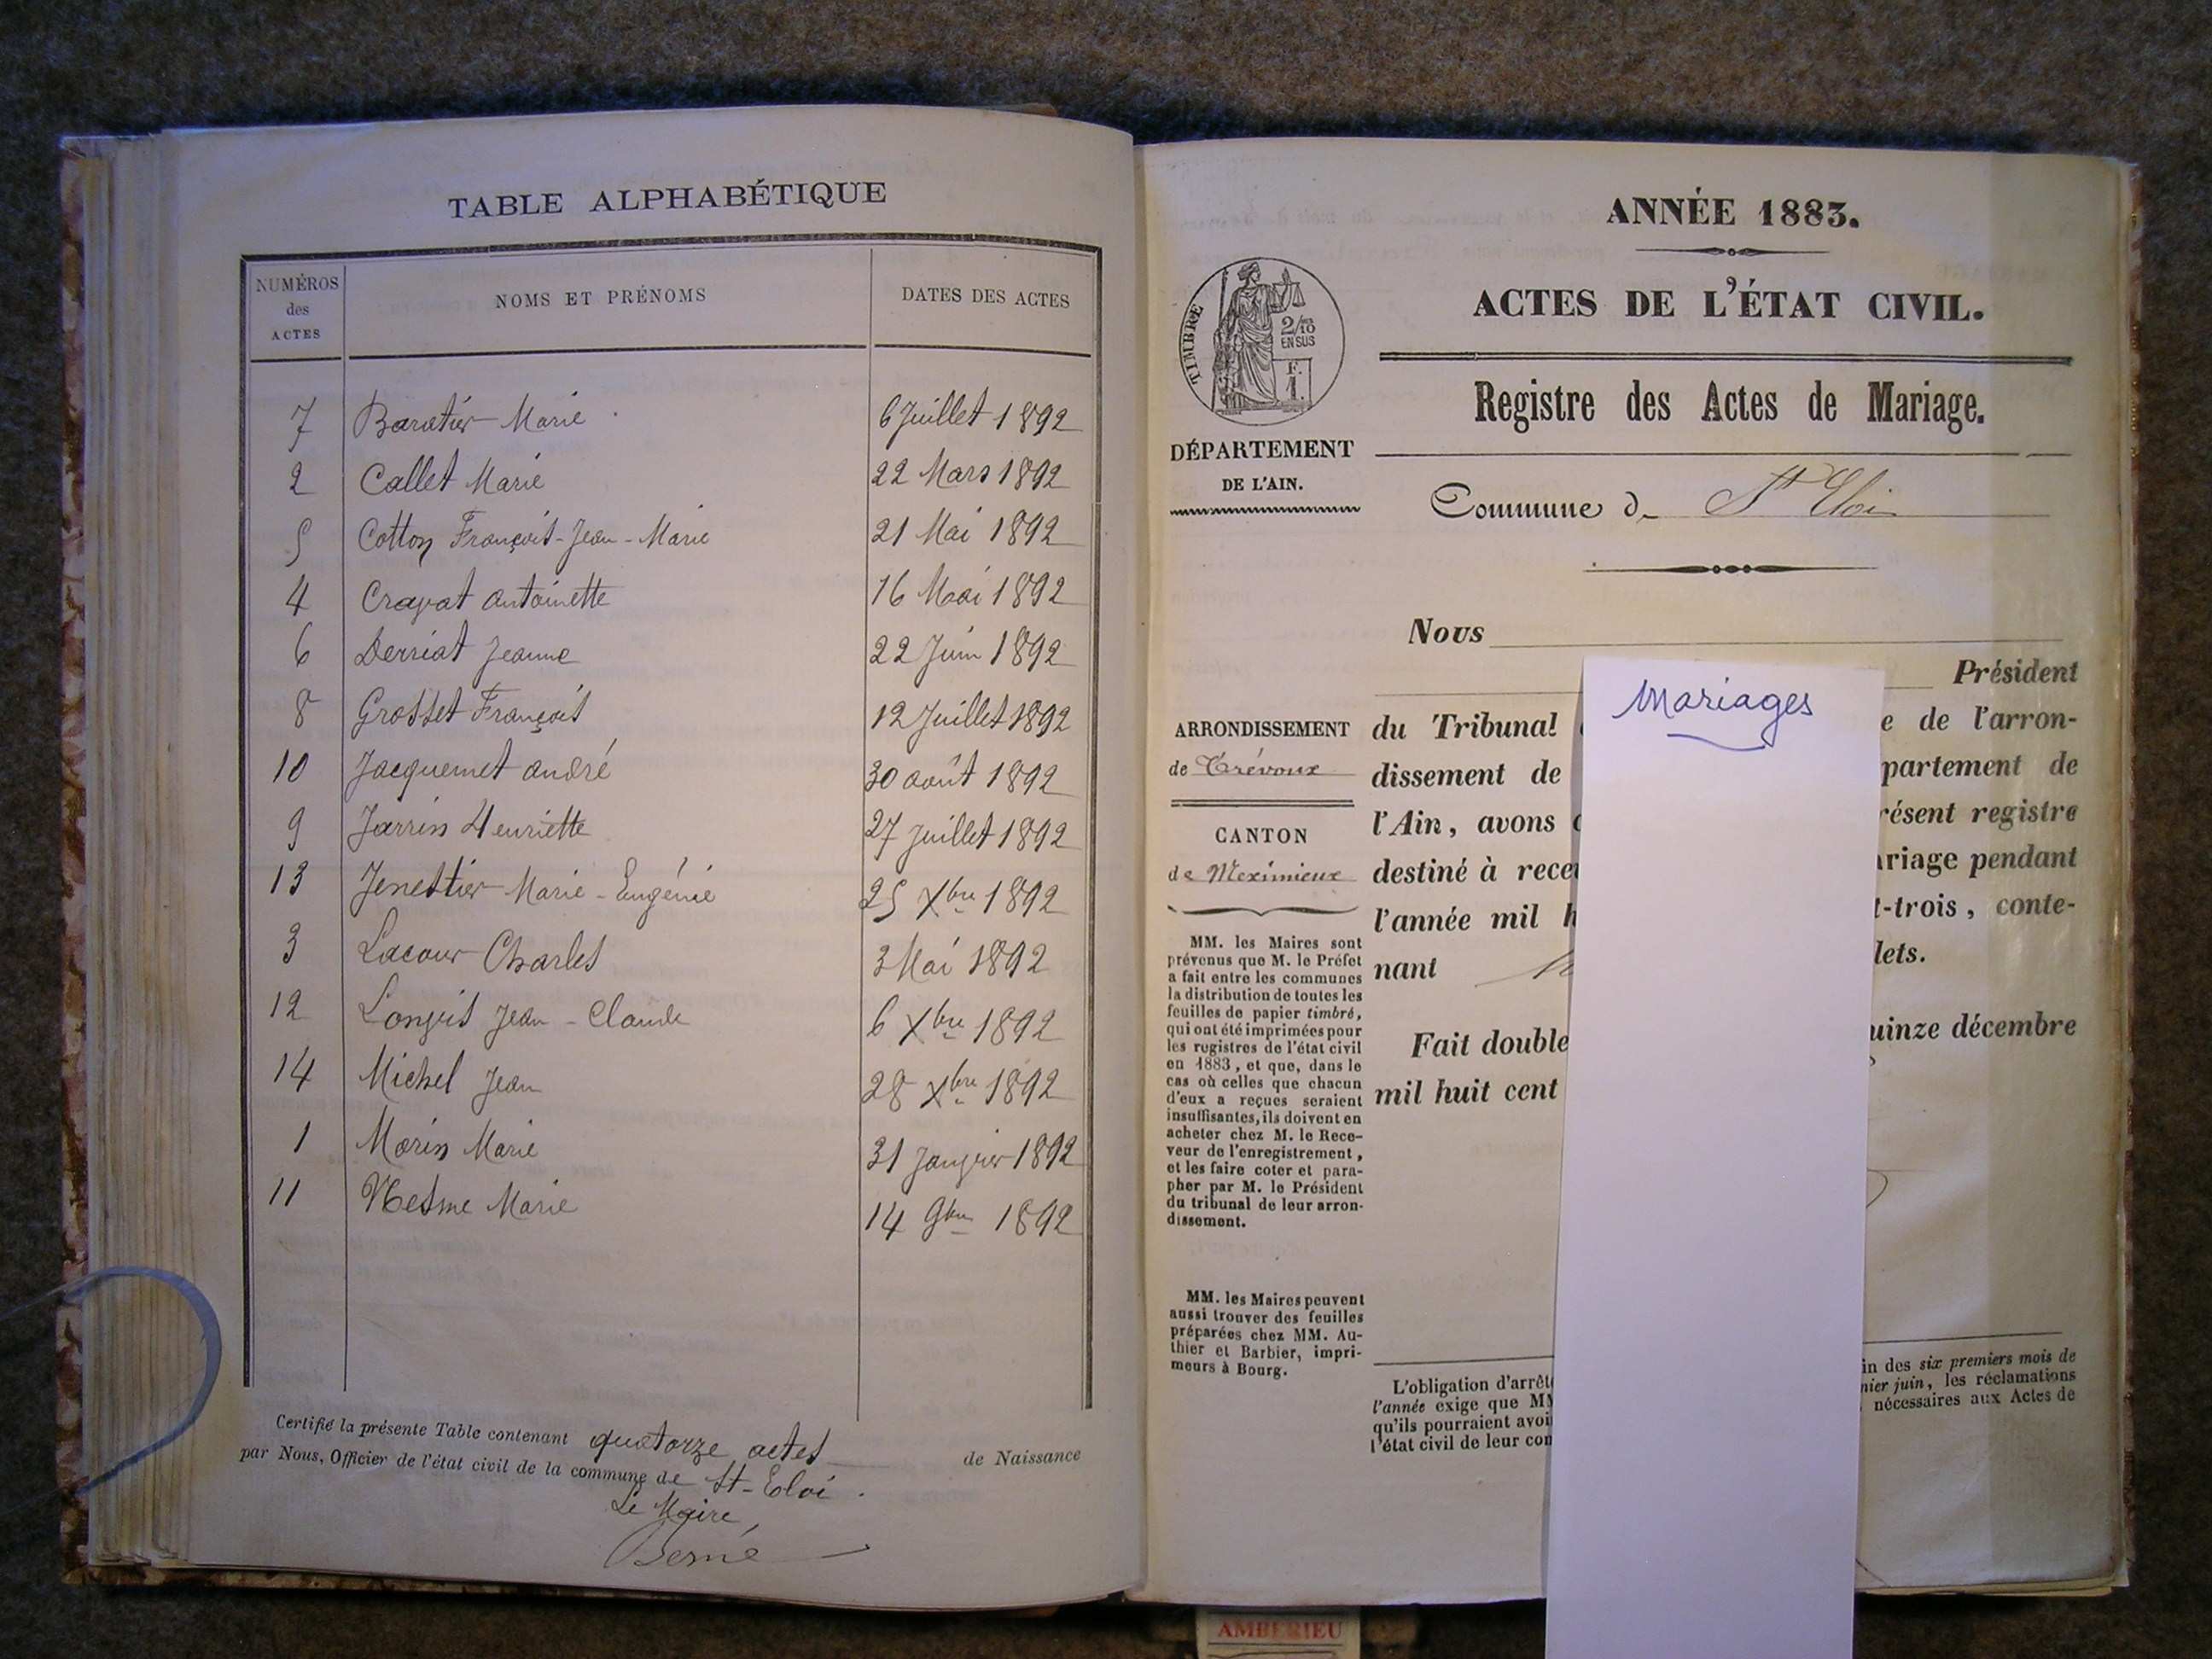 TABLE ALPHABÉTIQUE
NUMÉROS des ACTES NOMS ET PRÉNOMS DATES DES ACTES
7 Baratier Marie 6 Juillet 1892
2 Callet Marie 22 Mars 1892
5 Cotton François-Jean-Marie 21 Mai 1892
4 Cravat Antoinette 16 Mai 1892
6 Derriat Jeanne 22 Juin 1892
8 Grosset François 12 Juillet 1892
10 Jacquemet André 30 août 1892
9 Jarrin Henriette 27 Juillet 1892
13 Jenestier Marie-Eugénie 25 Xbre 1892
3 Lacour Charles 3 Mai 1892
12 Jean-Claude 6 Xbre 1892
14 Michel Jean 28 Xbre 1892
1 Morin Marie 31 Janvier 1892
11 Nesme Marie 14 9bre 1892
Certifié la présente Table contenant quatorze actes de Naissance
par Nous, Officier de l'état civil de la commune de St-Eloi.
Le Maire,
Berné
ANNÉE 1883.
ACTES DE L'ÉTAT CIVIL.
TIMBRE
2/10 EN SUS
F. 1.
Registre des Actes de Mariage.
DÉPARTEMENT
DE L'AIN.
Commune d St Eloi
Nous
Président
ARRONDISSEMENT
de Trévoux
CANTON
de Meximieux
MM. les Maires sont
prévenus que M. le Préfet
a fait entre les communes
la distribution de toutes les
feuilles de papier timbré,
qui ont été imprimées pour
les registres de l'état civil
en 1883, et que, dans le
cas où celles que chacun
d'eux a reçues seraient
insuffisantes, ils doivent en
acheter chez M. le Rece-
veur de l'enregistrement,
et les faire coter et para-
pher par M. le Président
du tribunal de leur arron-
dissement.
MM. les Maires peuvent
aussi trouver des feuilles
préparées chez MM. Au-
thier et Barbier, impri-
meurs à Bourg.
du Tribunal e de l'arron-
dissement de partement de
l'Ain, avons résent registre
destiné à rece ariage pendant
l'année mil h t-trois, conte-
nant lets.
Fait double uinze décembre
mil huit cent
L'obligation d'arrêt in des six premiers mois de
l'année exige que MM nier juin, les réclamations
qu'ils pourraient avoi nécessaires aux Actes de
l'état civil de leur com
Mariages
AMBERIEU